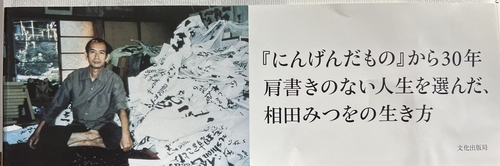 『にんげんだもの』から30年
肩書きのない人生を選んだ、
相田みつをの生き方
文化出版局